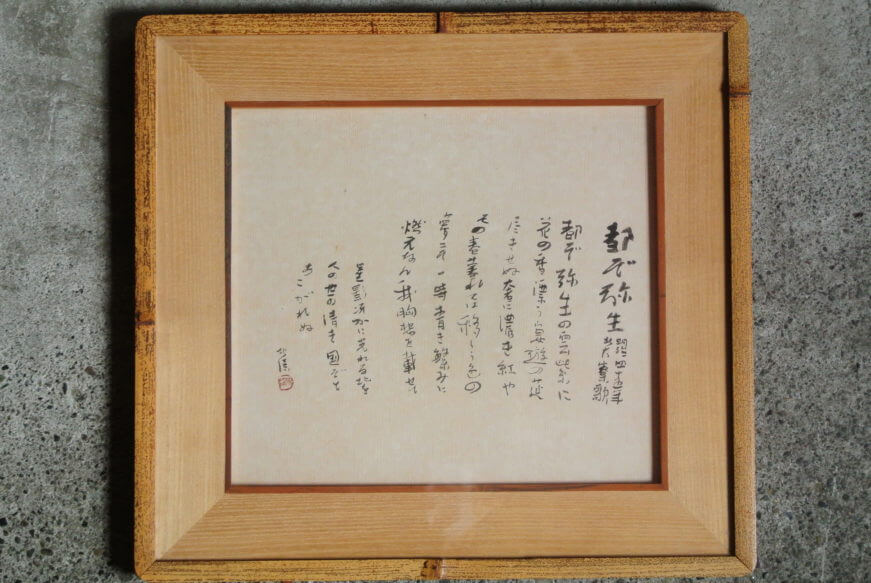 都ぞ弥生
明治四十五年
北大寮歌
都ぞ弥生の雲紫に
花の香漂う宴遊の莚
尽きせぬ奢に濃き紅や
その春暮れては移らう色の
夢こそ一時青き繁みに
燃えなん我胸想を載せて
星影冴かに光れる北を
人の世の清き国ぞと
あこがれぬ